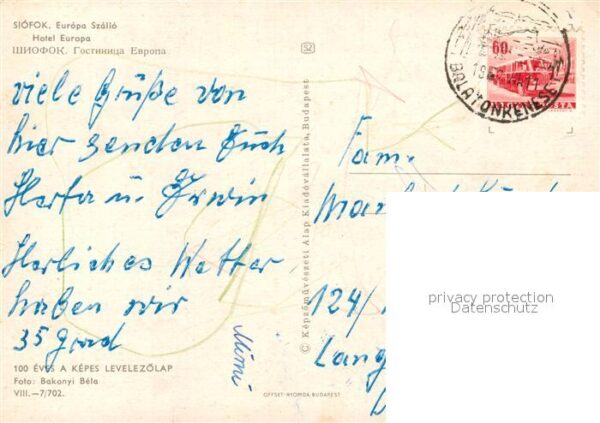 SIÓFOK. Európa Szálló
Hotel Europa
ШИОФОК. Гостиница Европа
viele Grüße von
hier senden Euch
Herta u. Erwin
Herrliches Wetter
haben wir
35 Grad
Mimi
100 ÉVES A KÉPES LEVELEZŐLAP
Foto: Bakonyi Béla
VIII.—7/702.
© Képzőművészeti Alap Kiadóvállalata, Budapest
OFFSET-NYOMDA BUDAPEST
60f
BALATONKENESE
POSTA
Fam.
124/
Lang
privacy protection
Datenschutz